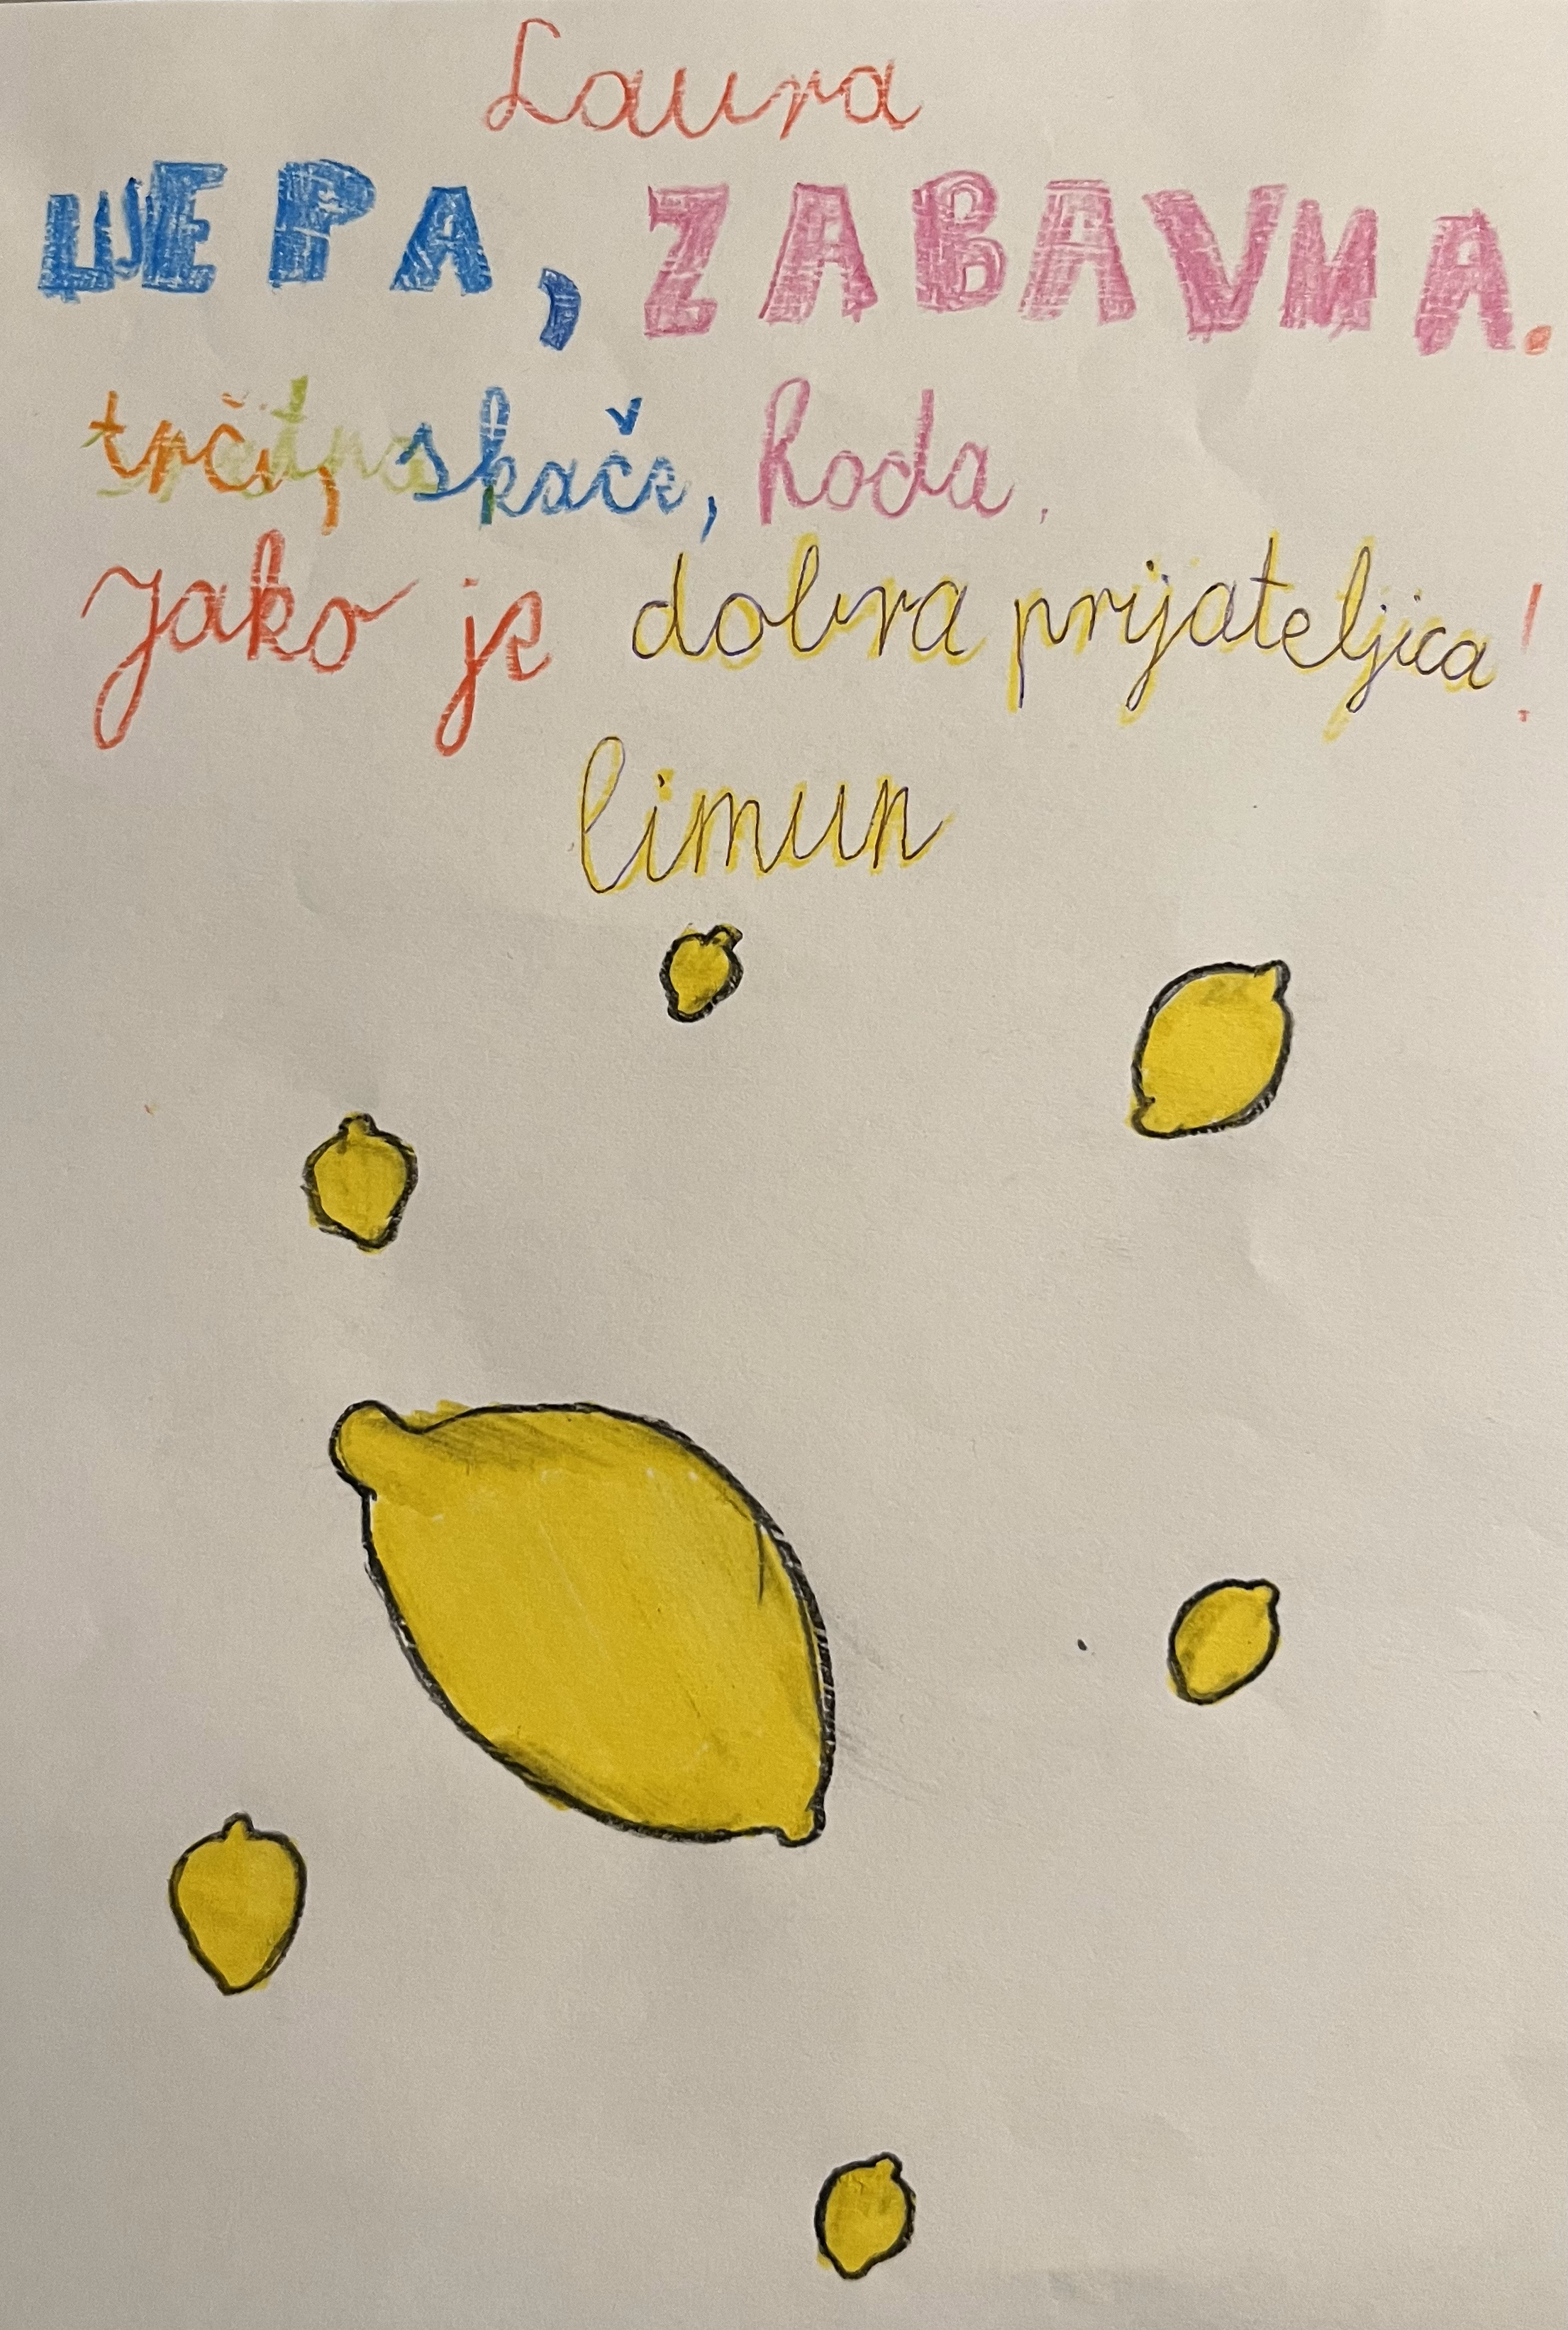 Laura
LIJEPA, ZABAVNA.
trči, skače, hoda.
Jako je dobra prijateljica!
limun